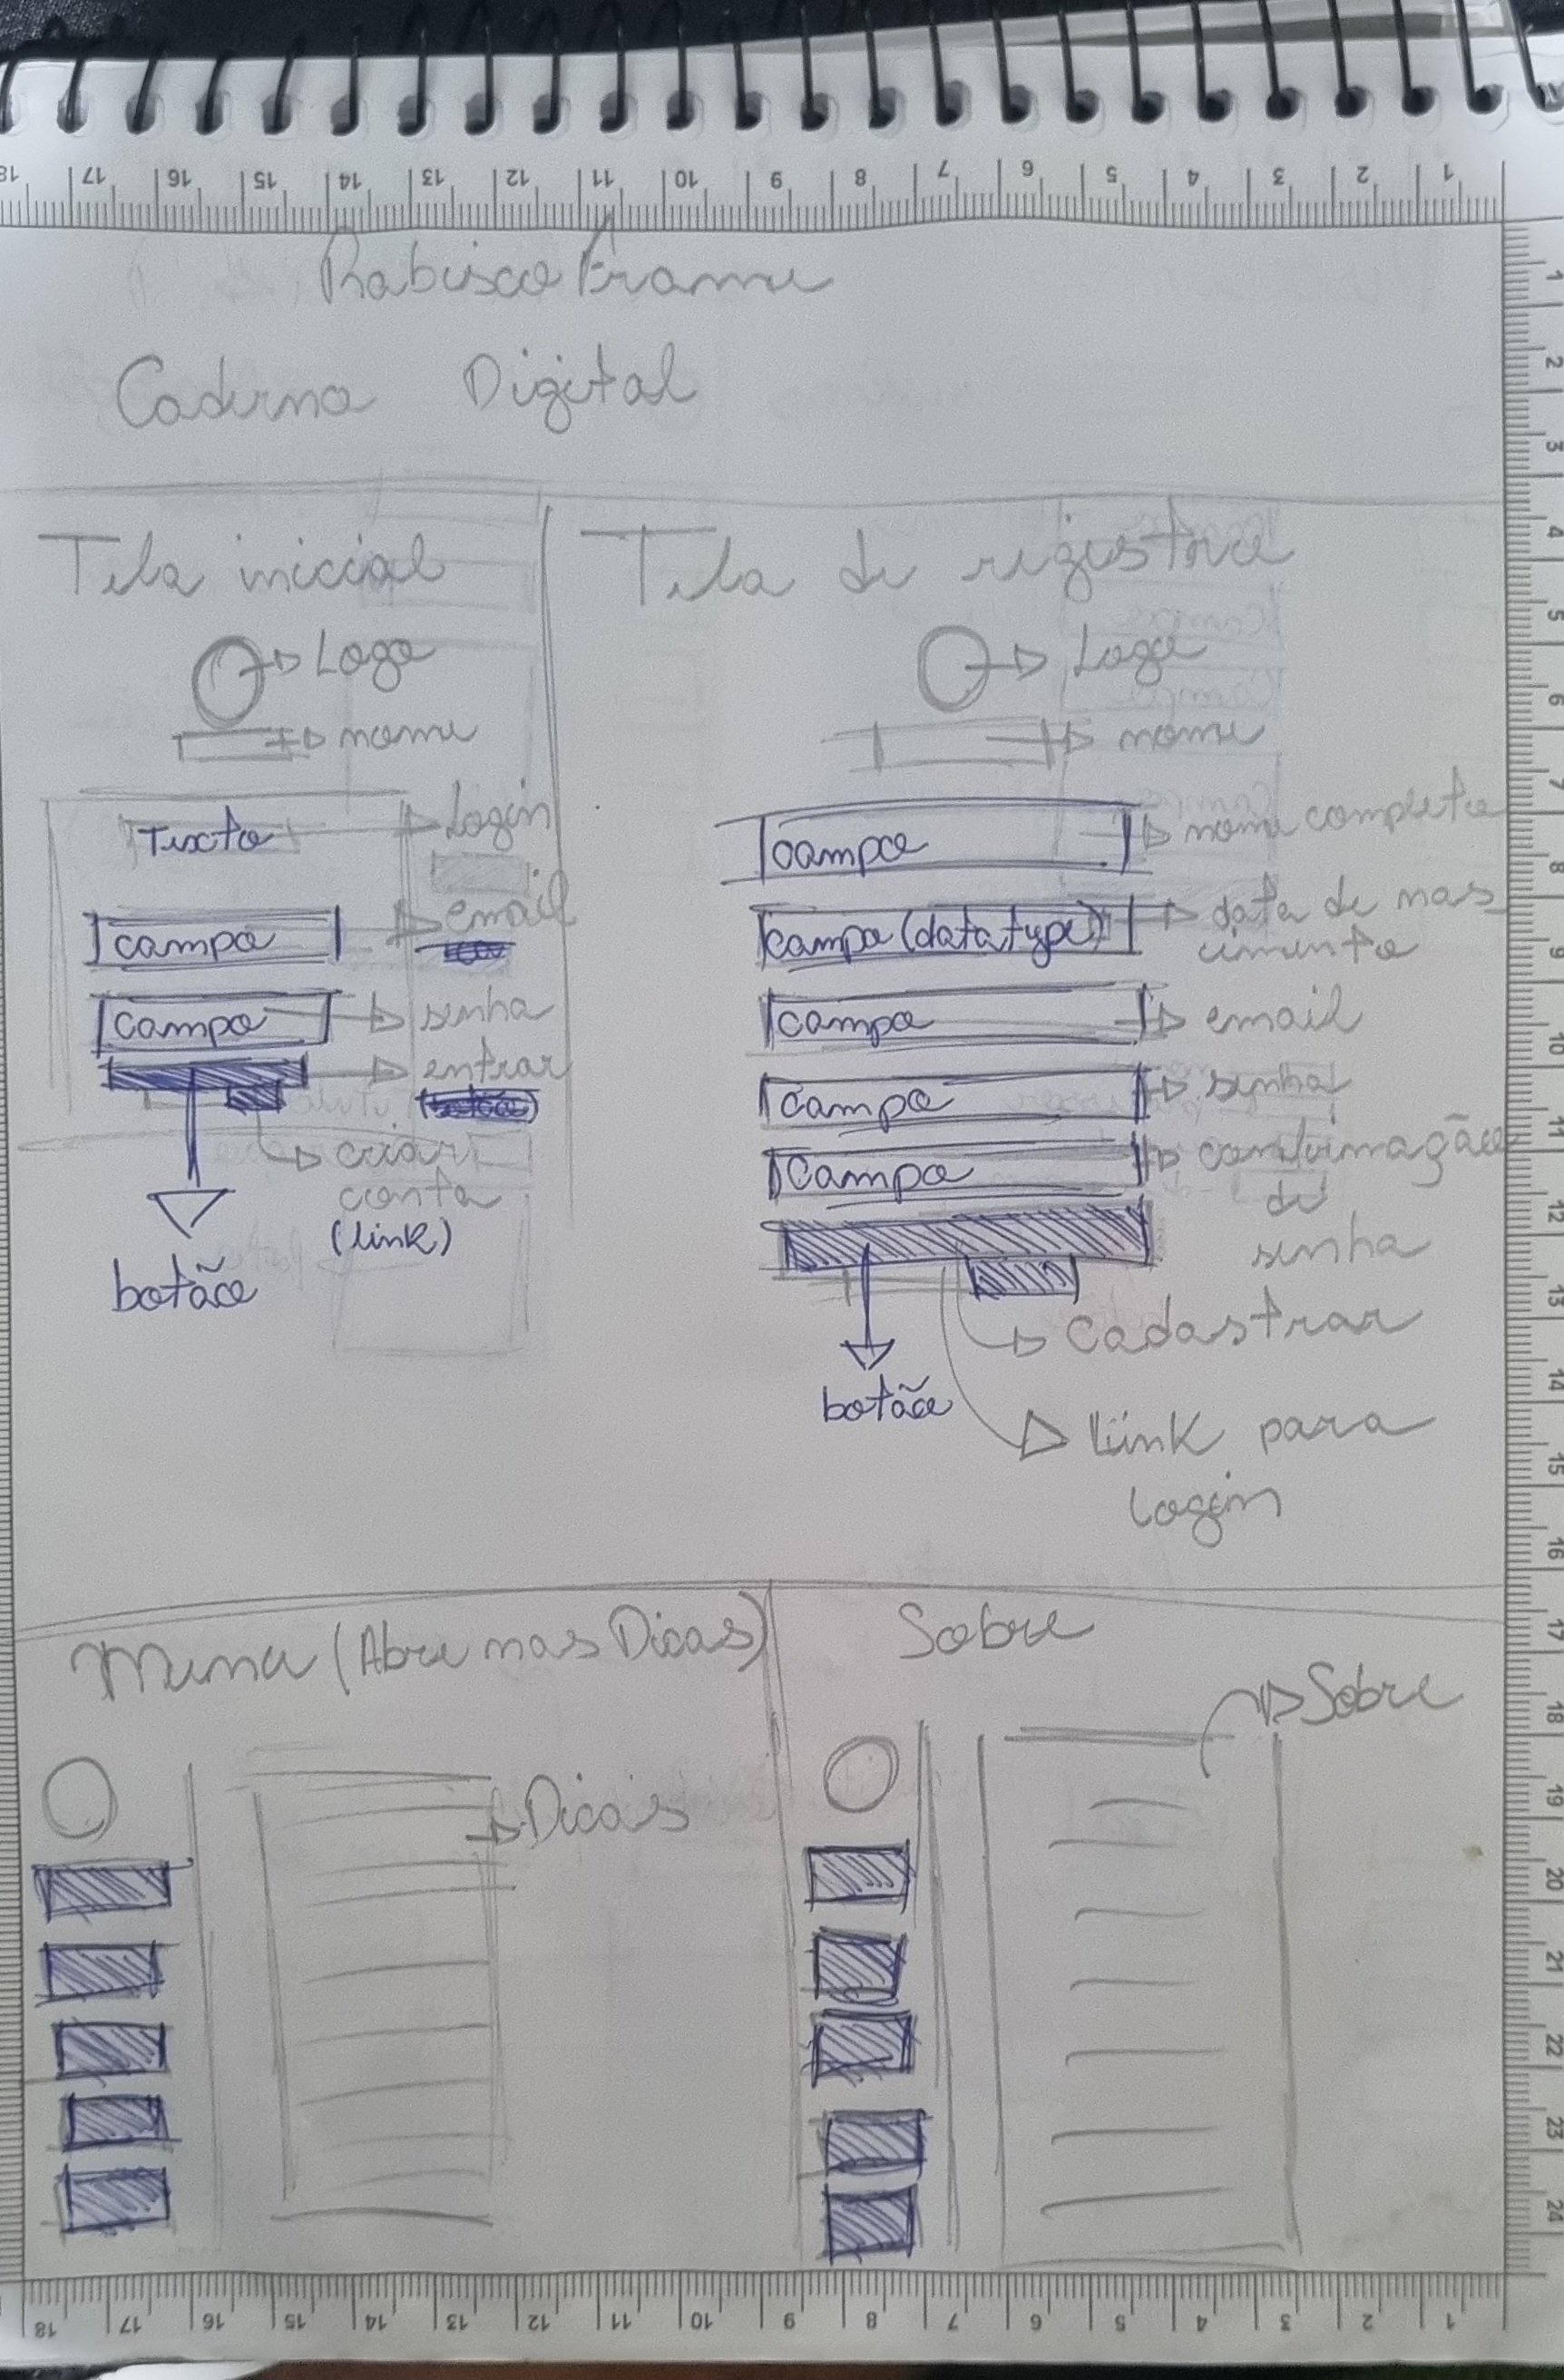 Rabisco Frame
Caderno Digital
Tela inicial
Logo
nome
Texto
Login
campo
email
campo
senha
entrar
criar
conta
(link)
botão
Tela de registro
Logo
nome
campo
nome completo
campo (data type)
data de nas
cimento
campo
email
campo
senha
campo
confirmação
de
senha
Cadastrar
botão
Link para
login
Menu (Abre nas Dicas)
Dicas
Sobre
Sobre
18 17 16 15 14 13 12 11 10 9 8 7 6 5 4 3 2 1
1
2
3
4
5
6
7
8
9
10
11
12
13
14
15
16
17
18
19
20
21
22
23
24
18 17 16 15 14 13 12 11 10 9 8 7 6 5 4 3 2 1